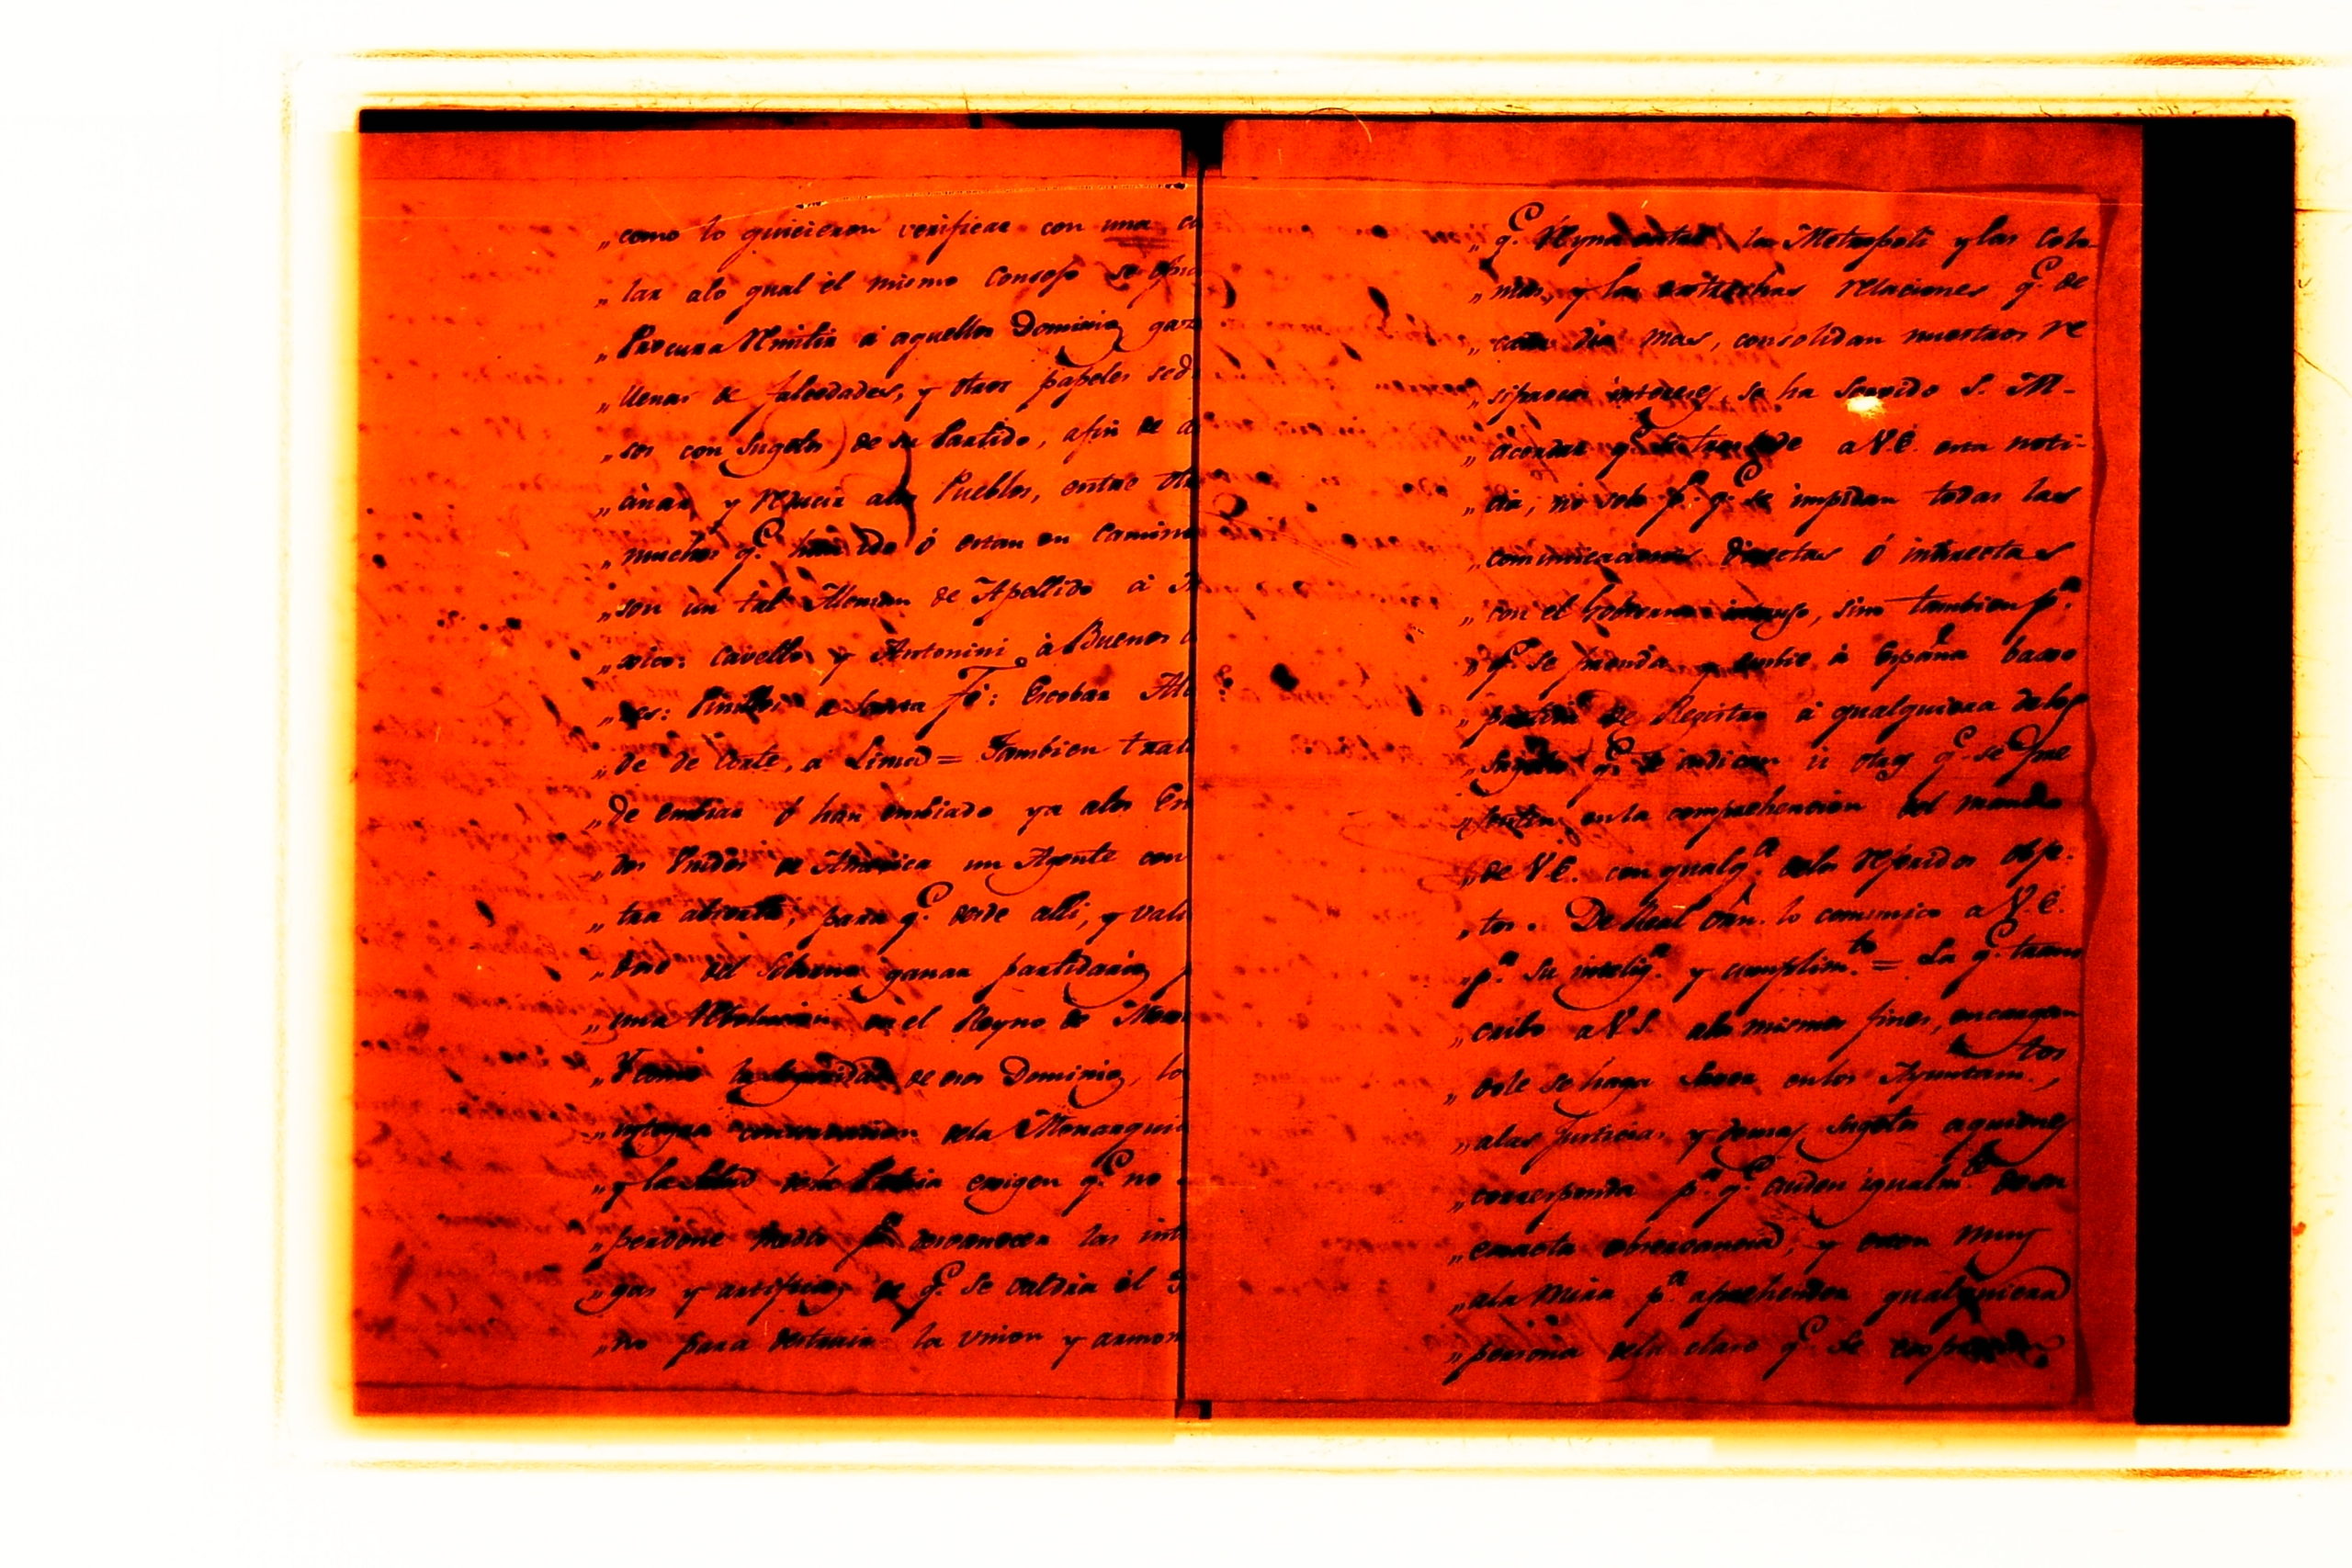 „como lo quicieron verificar con una ca
„tar alo qual él mismo Consejo se opu
„Procura Remitir á aquellos Dominios gaz
„llenas de falcedades, y otros papeles sedi
„sos con Sugetos de su Partido, afin de a
„ainar y reducir alos Pueblos, entre otr
„muchos q.e han ido ó estan en camino
„son un tal Aleman de Apellido á M
„xico: Cavello y Antonini á Buenos a
„res: Pinillos a Santa Fé: Escobar Alc
„de de Corte, a Lima = Tambien trat
„de embiar ó han embiado ya alos Es
„dos Unidos de America un Agente con
„tra abierta, para q.e desde alli, y vali
„dose del Soborno ganar partidarios p
„una Revolucion en el Reyno de Mex
„Y como la seguridad de esos Dominios, la
„integra conservacion dela Monarquia
„y la salud dela Patria exigen q.e no
„perdone medio p.a desvanecer las intr
„gas y artificios de q.e se valdra él
„no para destruir la union y armon
„q.e Reyna entre la Metropoli y las colo-
„nias, y las estrechas relaciones q.e de
„cada dia mas, consolidan nuestros re
„siprocos intereses, se ha servido S. M-
„acordar q.e se traslade a V.E. esta noti-
„cia, no solo p.a q.e se impidan todas las
„comunicaciones directas ó indirectas
„con el Gobierno intruso, sino tambien p.a
„q.e se prenda y embie á España baxo
„partida de Registro á qualquiera delos
„Sugetos q.e se indican ú otros q.e se pre
„senten en la comprehencion del mando
„de V.E. con qualq.a delos referidos obje-
„tos. De Real Orn. lo comunico a V.E.
„p.a su intelig.a y cumplim.to = La q.e trans
„cribo a V.S. alos mismos fines, encargan
„dole se haga Saver enlos Ayuntam.tos,
„alas Justicias y demas Sugetos aquienes
„corresponda p.a q.e cuiden igualm.te de su
„exacta observancia, y esten muy
„ala Mira p.a aprehender qualquiera
„persona dela clase q.e se expresa